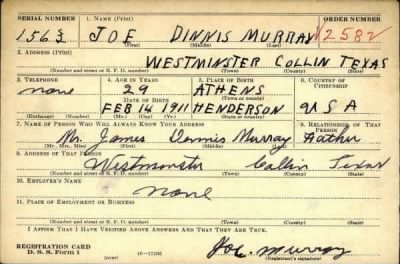 SERIAL NUMBER 1. NAME (Print) ORDER NUMBER
1563 JOE DINNIS MURRAY 2582
(First) (Middle) (Last)
2. ADDRESS (Print)
WESTMINSTER COLLIN TEXAS
(Number and street or R. F. D. number) (Town) (County) (State)
3. TELEPHONE 4. AGE IN YEARS 5. PLACE OF BIRTH 6. COUNTRY OF CITIZENSHIP
none 29 ATHENS
(Town or county)
DATE OF BIRTH
FEB 14 1911 HENDERSON U S A
(Exchange) (Number) (Mo.) (Day) (Yr.) (State or country)
7. NAME OF PERSON WHO WILL ALWAYS KNOW YOUR ADDRESS 8. RELATIONSHIP OF THAT PERSON
Mr. James Dennis Murray Father
(Mr., Mrs., Miss) (First) (Middle) (Last)
9. ADDRESS OF THAT PERSON
Westminster Collin Texas
(Number and street or R. F. D. number) (Town) (County) (State)
10. EMPLOYER'S NAME
none
11. PLACE OF EMPLOYMENT OR BUSINESS
(Number and street or R. F. D. number) (Town) (County) (State)
I AFFIRM THAT I HAVE VERIFIED ABOVE ANSWERS AND THAT THEY ARE TRUE.
REGISTRATION CARD
D. S. S. Form 1 Joe Murray
(Registrant's signature)